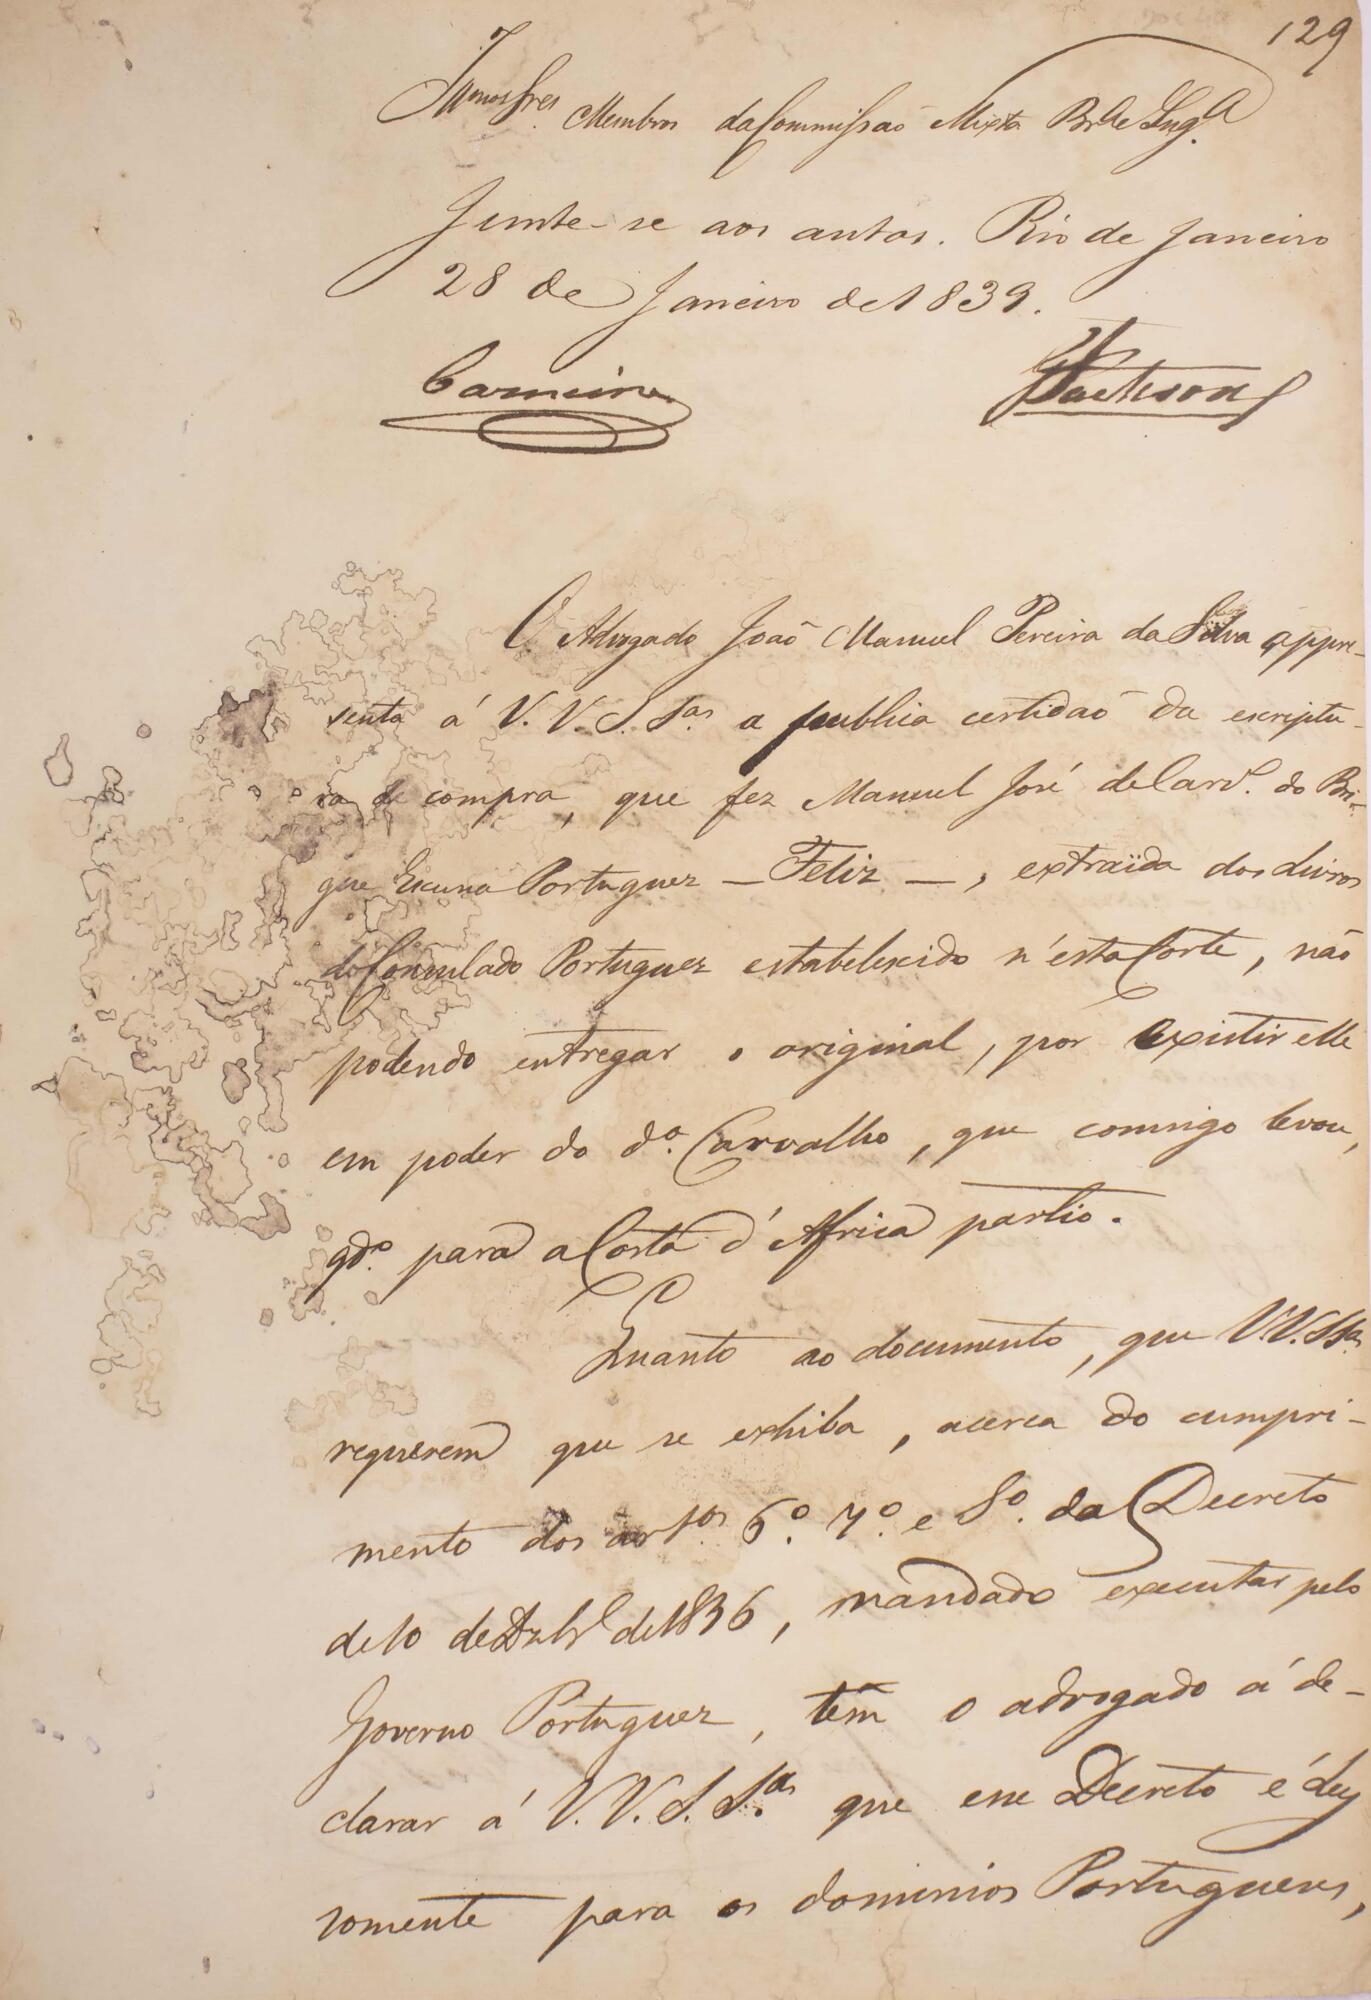 129
Illmos Sres Membros da Commissaõ Mixta Bra e Inga.
Junte-se aos autos. Rio de Janeiro
28 de Janeiro de 1839.
Carneiro Jackson
O Advogado Joaõ Manuel Pereira da Silva appre-
senta á V. V. S. Sas. a publica certidaõ da escriptu-
ra de compra, que fez Manuel José de Carvo. do Bri-
gue Escuna Portuguez — Feliz —, extraïda dos livros
do Consulado Portuguez estabelescido n'esta Corte, não
podendo entregar o original, por existir elle
em poder do do. Carvalho, que comsigo levou,
qdo. para a Costa d'Africa partio.
Quanto ao documento, que V.V.SSas.
requerem que se exhiba, acerca do cumpri-
mento dos artos. 6º. 7º. e 8º. do Decreto
de 10 de Dzbro de 1836, mandado executar pelo
Governo Portuguez, têm o advogado á de-
clarar á V. V. S. Sas. que esse Decreto é ley
somente para os dominios Portuguezes,